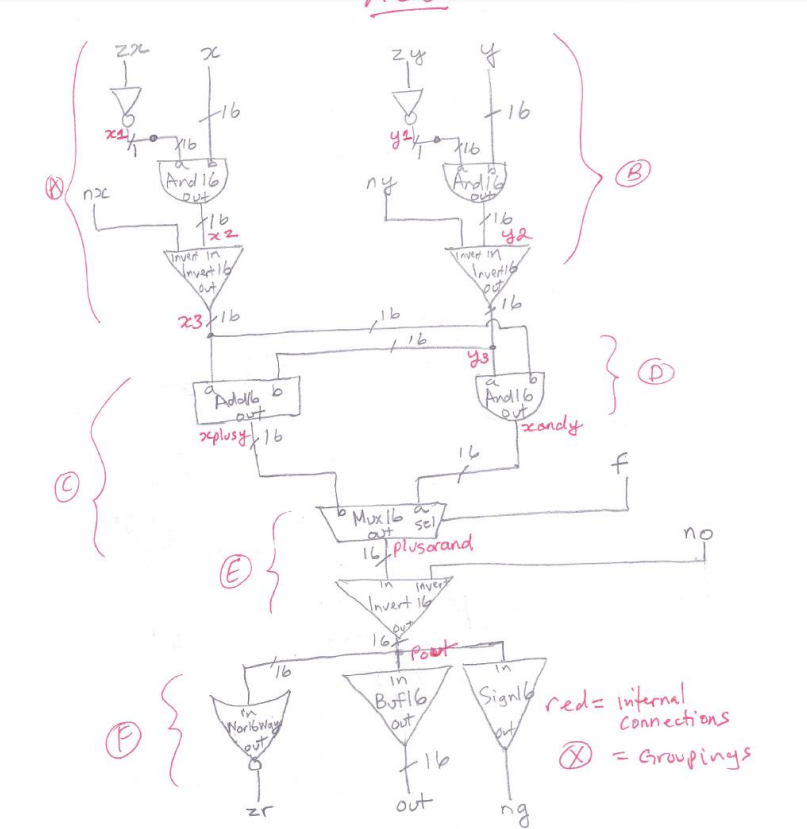 zx x zy y
16 16
x1 1 16 y1 1 16
A a b a b B
And16 And16
nx out ny out
16 16
x2 y2
Invert in Invert in
Invert16 Invert16
out out
x3 16 16 16
16
y3
a b a b D
Add16 And16
out out
xplusy 16 xandy
16 f
C
b a
Mux16 sel
out
16 plusorand no
E
in invert
Invert16
out
16
Pout
16 in in
in Buf16 Sign16 red = internal
Nor16Way out connections
out out
F 16 X = Groupings
zr out ng